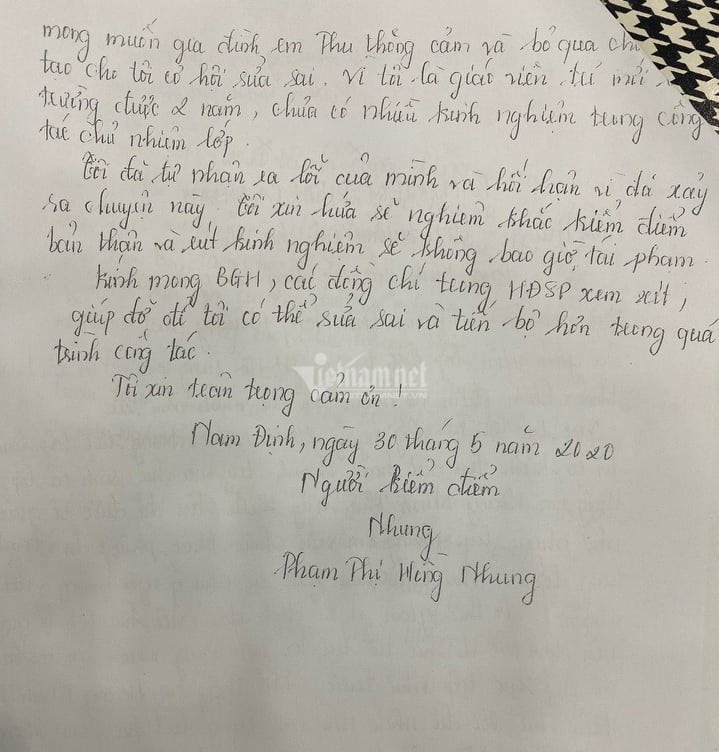 mong muốn gia đình em Thu thông cảm và bỏ qua
tạo cho tôi cơ hội sửa sai. Vì tôi là giáo viên từ mới
trường được 2 năm, chưa có nhiều kinh nghiệm trong công
tác chủ nhiệm lớp.
Tôi đã tự nhận ra lỗi của mình và hối hận vì đã xảy
ra chuyện này. Tôi xin hứa sẽ nghiêm khắc kiểm điểm
bản thân và rút kinh nghiệm sẽ không bao giờ tái phạm.
Kính mong BGH, các đồng chí trong HĐSP xem xét,
giúp đỡ để tôi có thể sửa sai và tiến bộ hơn trong quá
trình công tác.
Tôi xin trân trọng cảm ơn!
Vietnamnet
Nam Định, ngày 30 tháng 5 năm 2020
Người kiểm điểm
Nhung
Phạm Thị Hồng Nhung